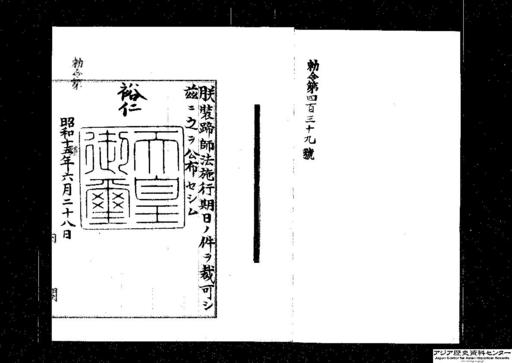 勅令第四百三十九號
朕装蹄師法施行期日ノ件ヲ裁可シ
茲ニ之ヲ公布セシム
裕仁
天皇
御璽
昭和十五年六月二十八日
勅令第
内
閣
アジア歴史資料センター
Japan Center for Asian Historical Records